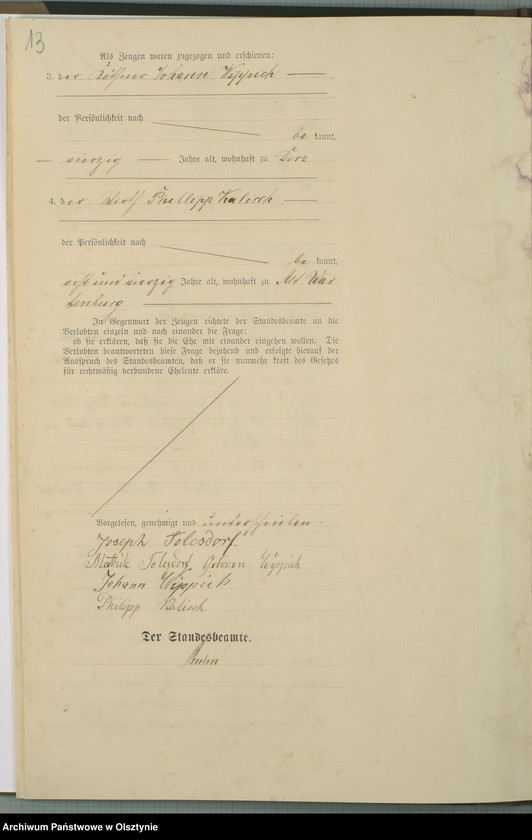 13
Als Zeugen waren zugezogen und erschienen:
3. der Käthner Johann Wippich
der Persönlichkeit nach
be kannt,
vierzig Jahre alt, wohnhaft zu
4. der Wirth Phillipp Kalisch
der Persönlichkeit nach
be kannt,
acht und vierzig Jahre alt, wohnhaft zu Alt War
tenburg
In Gegenwart der Zeugen richtete der Standesbeamte an die
Verlobten einzeln und nach einander die Frage:
ob sie erklären, daß sie die Ehe mit einander eingehen wollen. Die
Verlobten beantworteten diese Frage bejahend und erfolgte hierauf der
Ausspruch des Standesbeamten, daß er sie nunmehr kraft des Gesetzes
für rechtmäßig verbundene Eheleute erkläre.
Vorgelesen, genehmigt und unterschrieben.
Joseph Tolosdorf.
Tolosdorf Geboren Wippich
Johann Wippich
Philipp Kalisch
Der Standesbeamte.
Archiwum Państwowe w Olsztynie